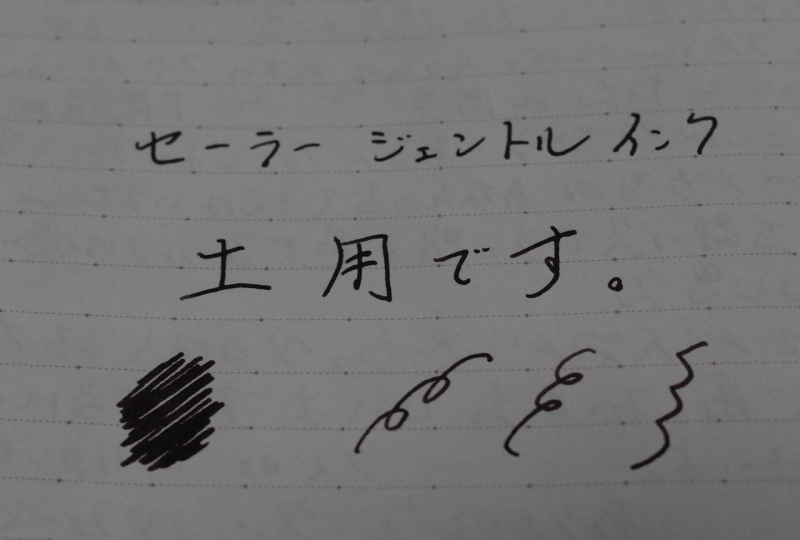 セーラー ジェントルインク
土用です。